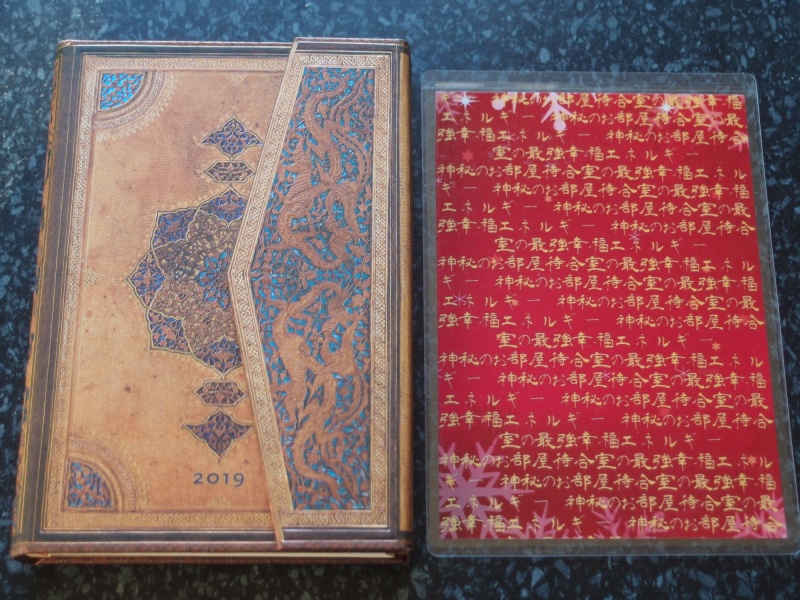 2019
神秘のお部屋待合室の最強幸福
エネルギー 神秘のお部屋待合室の最
強幸福エネルギー 神秘のお部屋待合
室の最強幸福エネルギー
神秘のお部屋待合室の最強幸福エネル
ギー 神秘のお部屋待合室の最強幸福
エネルギー 神秘のお部屋待合室の最
強幸福エネルギー 神秘のお部屋待合
室の最強幸福エネルギー
神秘のお部屋待合室の最強幸福エネル
ギー 神秘のお部屋待合室の最強幸福
エネルギー 神秘のお部屋待合室の最
強幸福エネルギー 神秘のお部屋待合
室の最強幸福エネルギー
神秘のお部屋待合室の最強幸福エネル
ギー 神秘のお部屋待合室の最強幸福
エネルギー 神秘のお部屋待合室の最
強幸福エネルギー 神秘のお部屋待合
室の最強幸福エネルギー
神秘のお部屋待合室の最強幸福エネル
ギー 神秘のお部屋待合室の最強幸福
エネルギー 神秘のお部屋待合室の最
強幸福エネルギー 神秘のお部屋待合